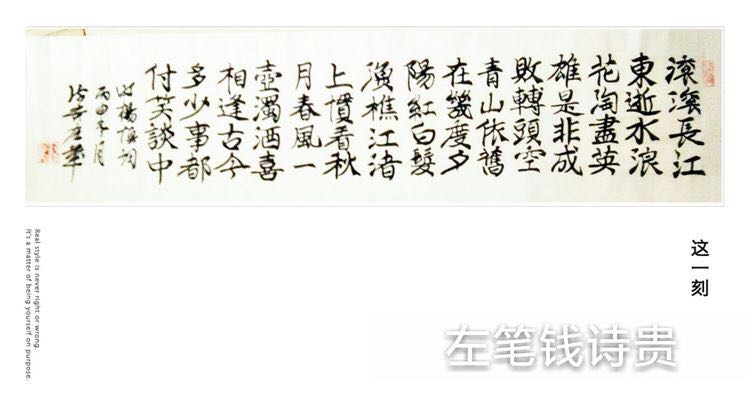 滚滚長江
東逝水浪
花淘盡英
雄是非成
敗轉頭空
青山依舊
在幾度夕
陽紅白髮
漁樵江渚
上慣看秋
月春風一
壺濁酒喜
相逢古今
多少事都
付笑談中
明楊慎詞
丙申月
诗贵左筆
这一刻
左笔钱诗贵
Real style is never right or wrong.
It's a matter of being yourself on purpose.